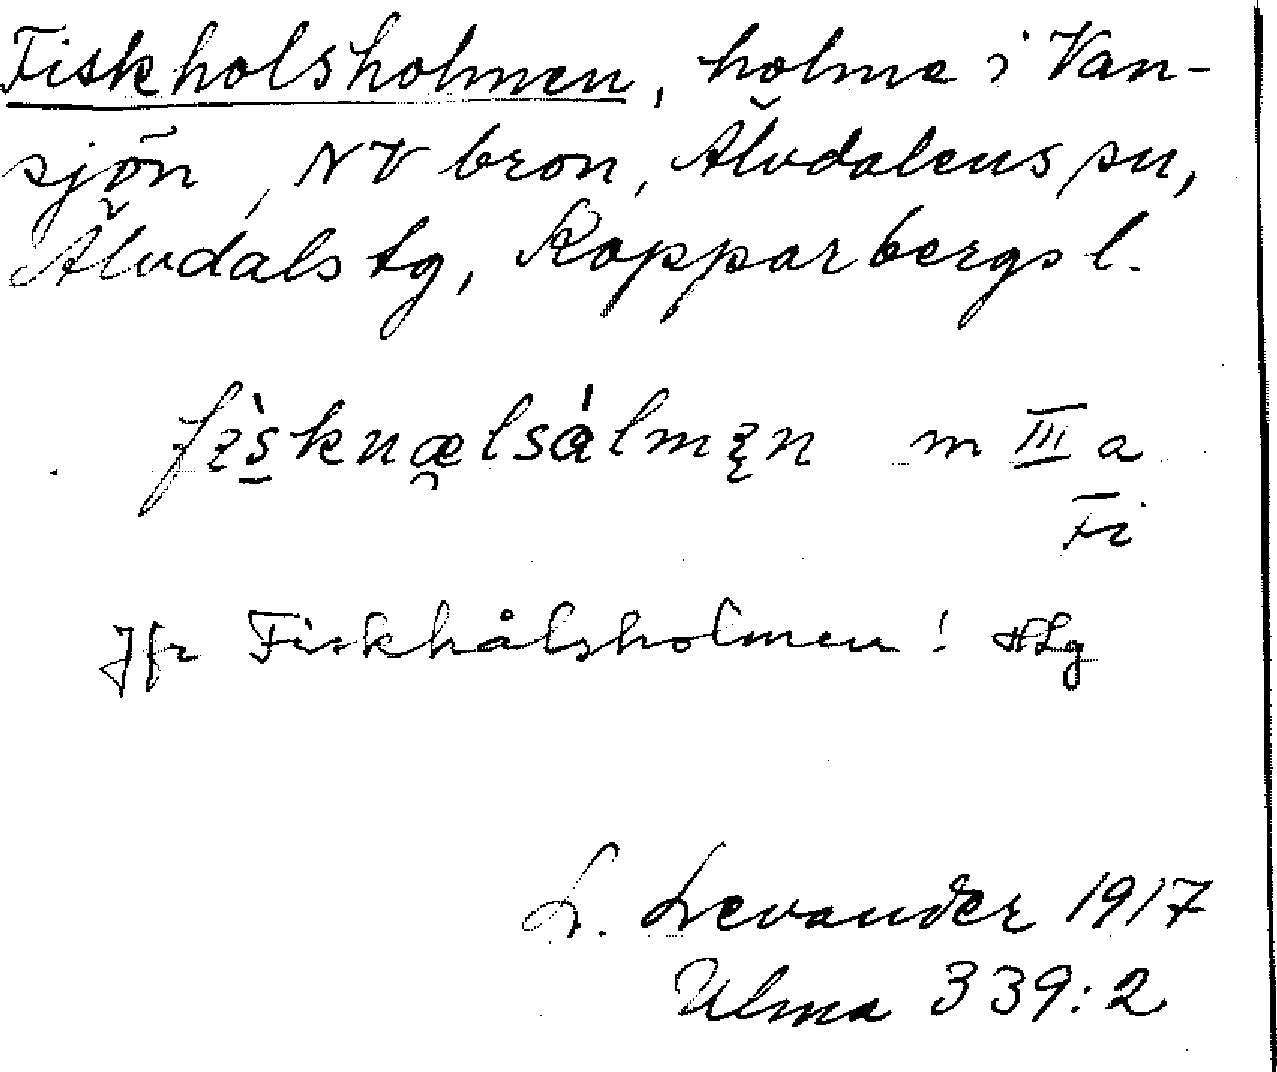 Fiskholsholmen, holme i Van-
sjön, NV bron, Älvdalens sn,
Älvdals tg, Kopparbergs l.
m III a
Fi
Jfr Fiskhålsholmen! HLg
L. Levander 1917
Ulma 339:2